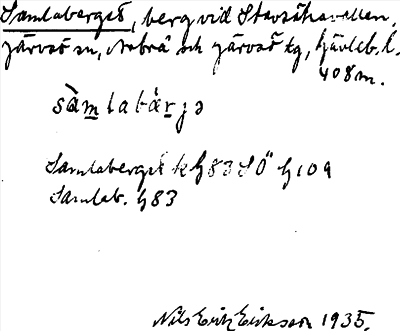 Samlaberget, berg vid Storsåhavallen,
järvsö sn, Arbrå och järvsö tg, Gävleb. l.
408 m.
sàm̲labär̲jə
Samlaberget k G83 SÖ G109
Samlab. G83
Nils Erik Eriksson 1935.